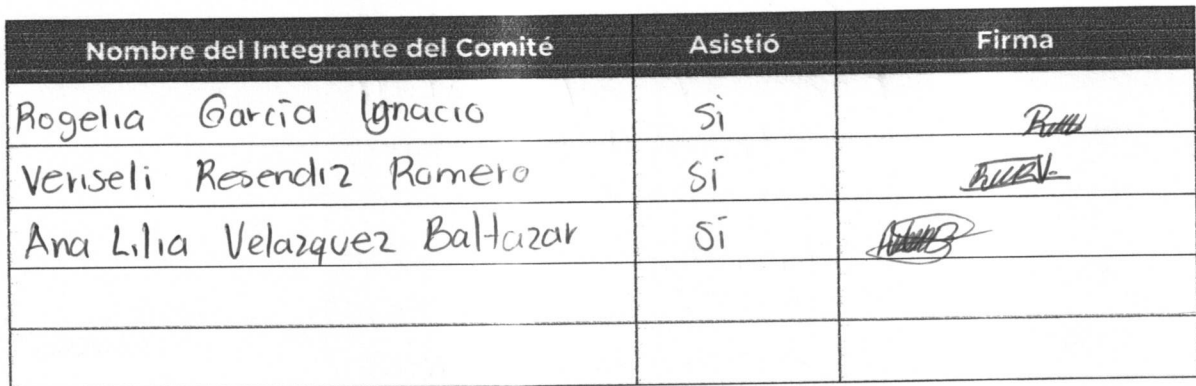 Nombre del Integrante del Comité Asistió Firma
Rogelia García Ignacio Si
Veriseli Resendiz Romero Sí
Ana Lilia Velazquez Baltazar Sí